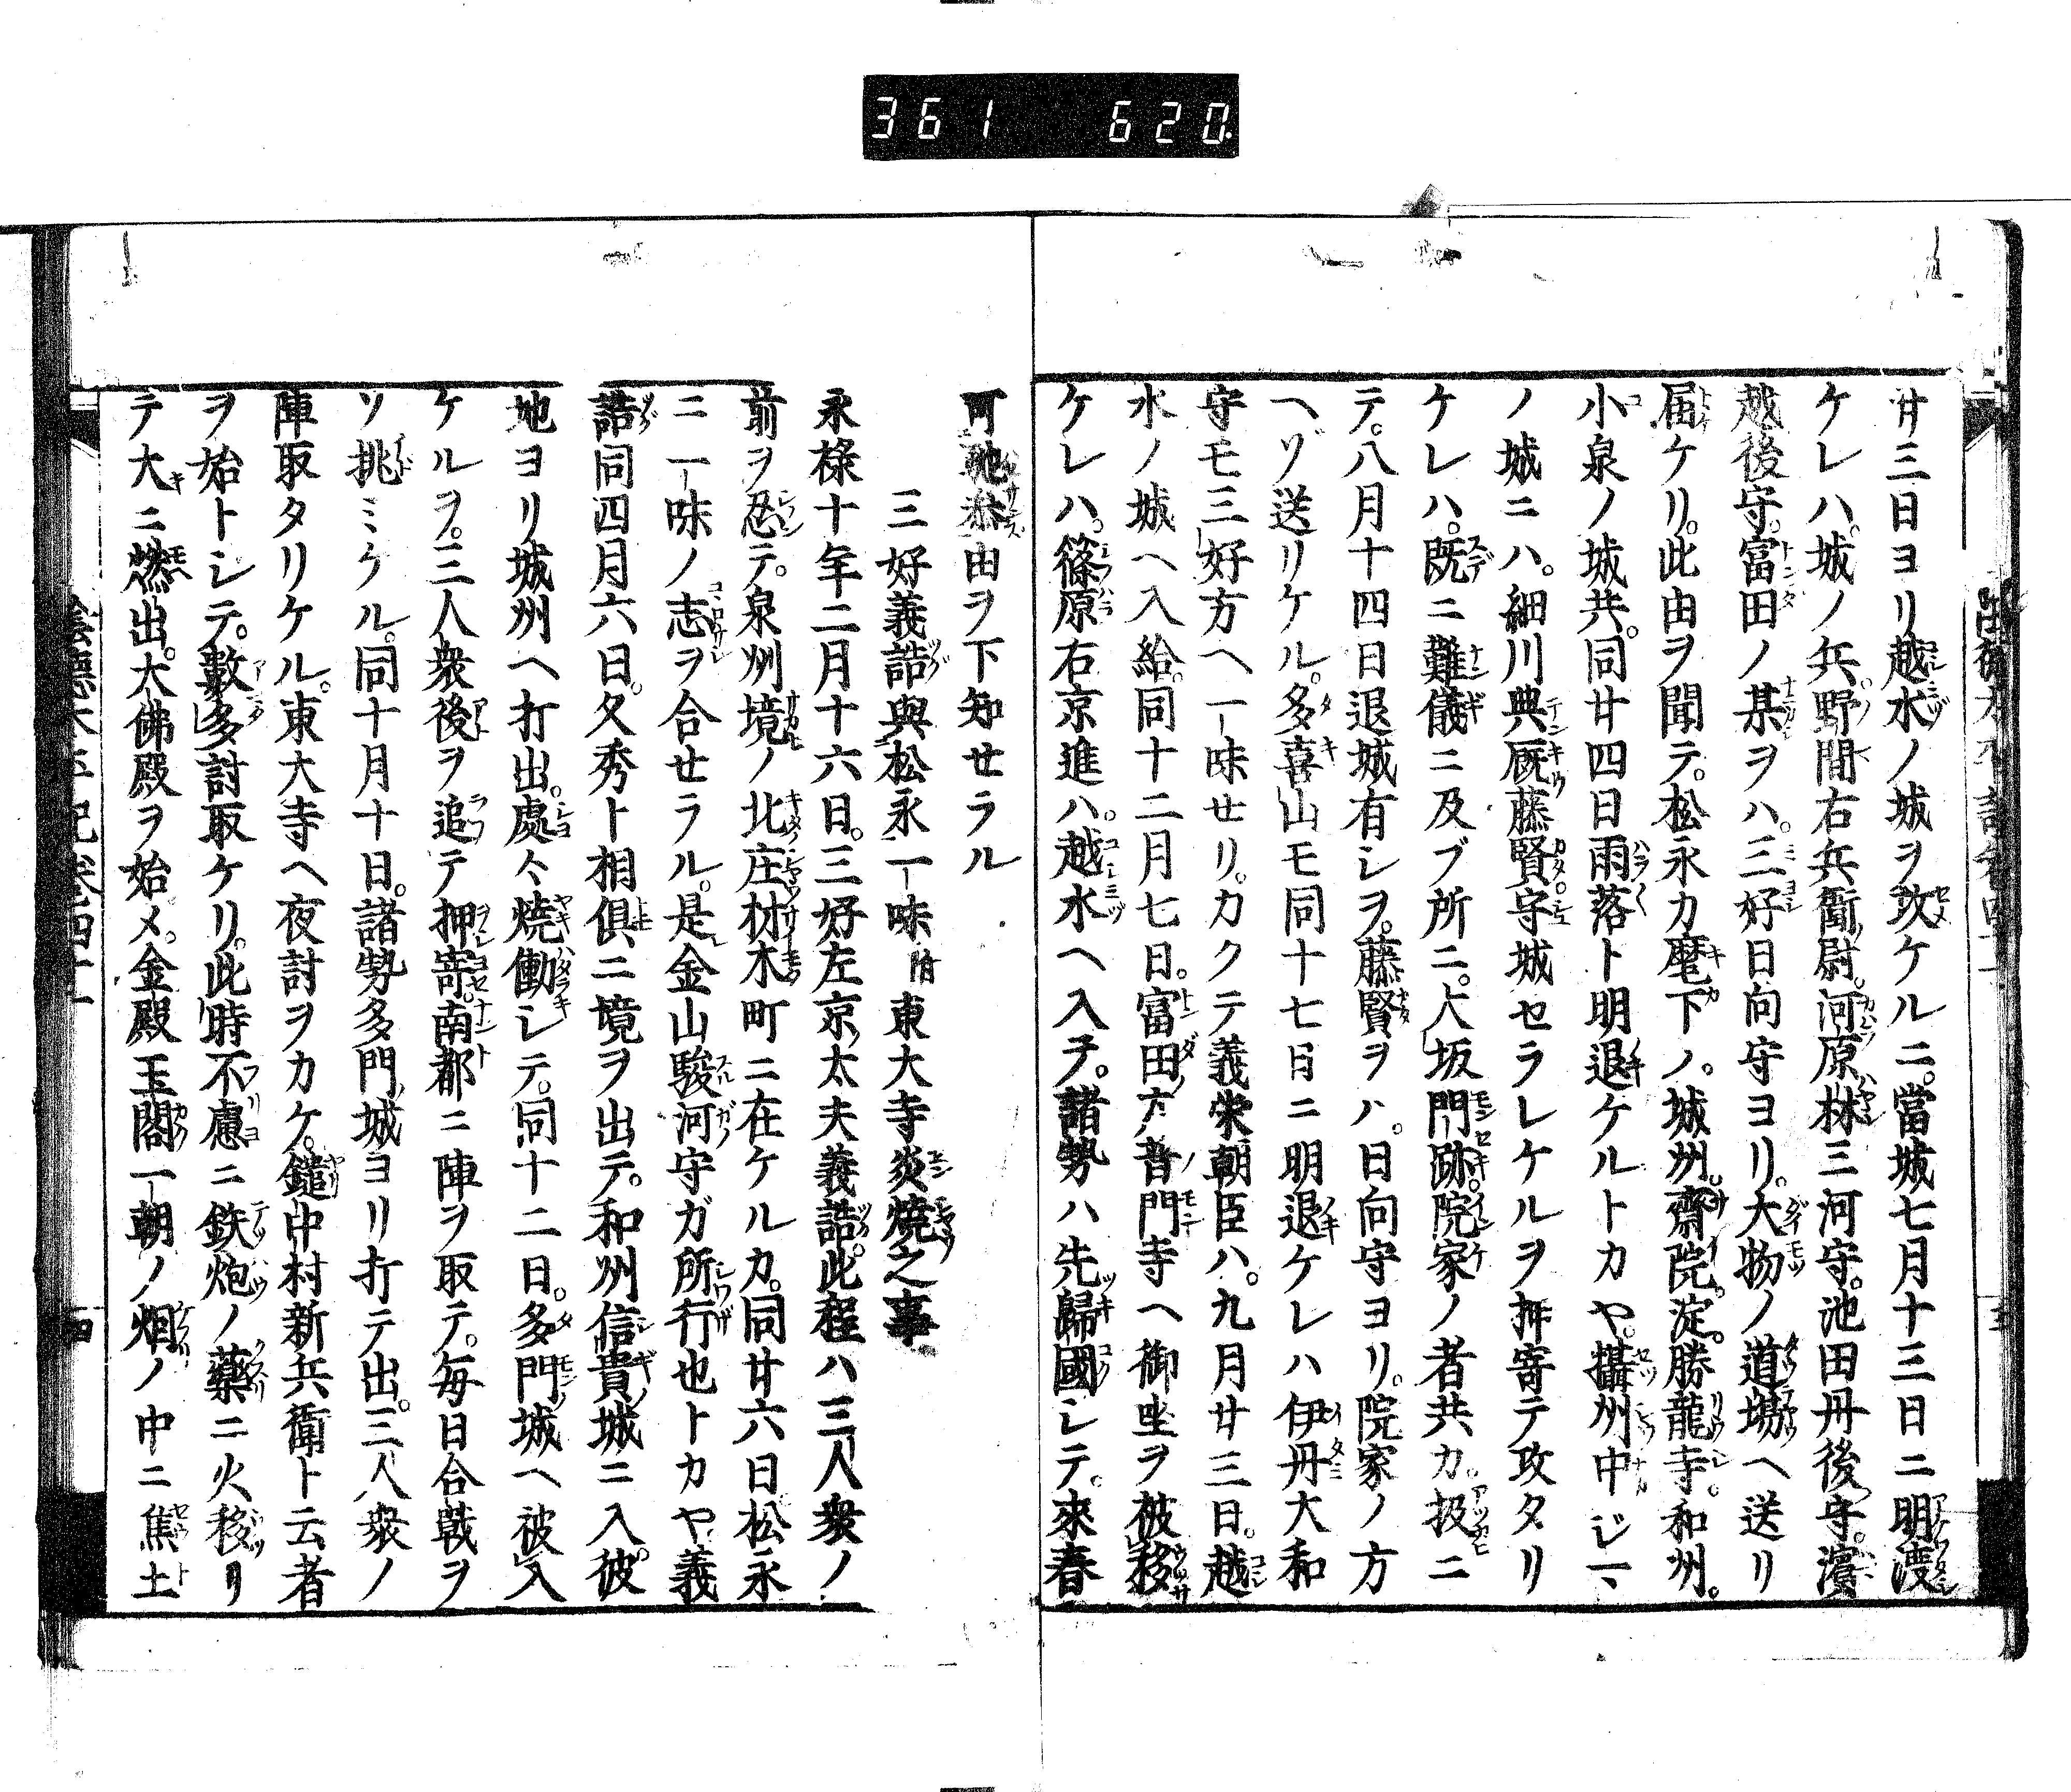 361 620
廿三日ヨリ越水ノ城ヲ攻ケルニ。當城七月十三日ニ明渡
ケレハ。城ノ兵野間右兵衞尉。河原林三河守。池田丹後守。濱
越後守。冨田ノ某ヲハ。三好日向守ヨリ。大物ノ道場ヘ送リ
届ケリ。此由ヲ聞テ。松永カ麾下ノ。城州。齋院。淀。勝龍寺。和州。
小泉ノ城共。同廿四日雨落ト明退ケルトカヤ。攝州中ジヽ
ノ城ニハ。細川典厩藤賢守城セラレケルヲ押寄テ攻タリ
ケレハ。既ニ難儀ニ及ブ所ニ。大坂門跡。院家ノ者共カ。扱ニ
テ。八月十四日退城有シヲ。藤賢ヲハ。日向守ヨリ。院家ノ方
ヘゾ送リケル。多喜山モ同十七日ニ明退ケレハ伊丹大和
守モ三好方ヘ一味セリ。カクテ義栄朝臣ハ。九月廿三日。越
水ノ城ヘ入給。同十二月七日。富田ノ普門寺ヘ御坐ヲ被移
ケレハ。篠原右京進ハ。越水ヘ入テ。諸勢ハ先歸國シテ。來春
可馳参由ヲ下知セラル
三好義誥與松永一味 附 東大寺炎燒之事
永禄十年二月十六日。三好左京太夫義誥。此程ハ三人衆ノ
前ヲ忍テ。泉州境ノ北庄材木町ニ在ケルカ。同廿六日松永
ニ一味ノ志ヲ合セラル。是金山駿河守ガ所行也トカヤ義
誥同四月六日。久秀ト相俱ニ境ヲ出テ。和州信貴城ニ入。彼
地ヨリ城州ヘ打出。處々燒働シテ。同十二日。多門城ヘ被入
ケルヲ。三人衆後ヲ追テ押寄。南都ニ陣ヲ取テ。毎日合戰ヲ
ソ挑ミケル。同十月十日。諸勢多門城ヨリ打テ出。三人衆ノ
陣取タリケル。東大寺ヘ夜討ヲカケ。鑓中村新兵衞ト云者
ヲ始トシテ。數多討取ケリ。此時不慮ニ鉄炮ノ藥ニ火移リ
テ大ニ燃出。大佛殿ヲ始メ。金殿玉閣一朝ノ烟ノ中ニ焦土